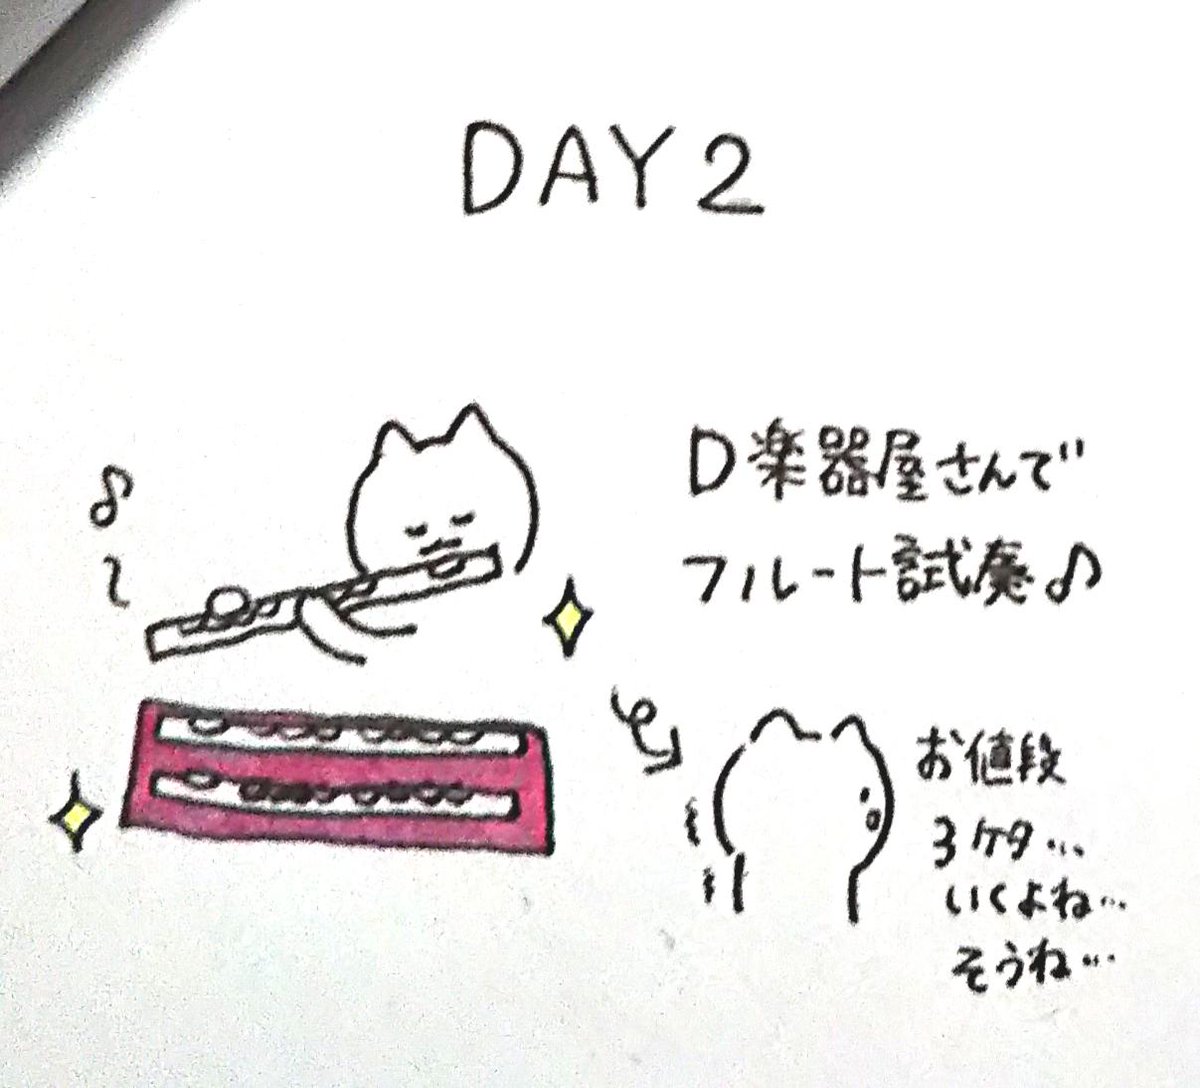 DAY 2
D楽器屋さんで
フルート試奏♪
お値段
3ケタ…
いくよね…
そうね…